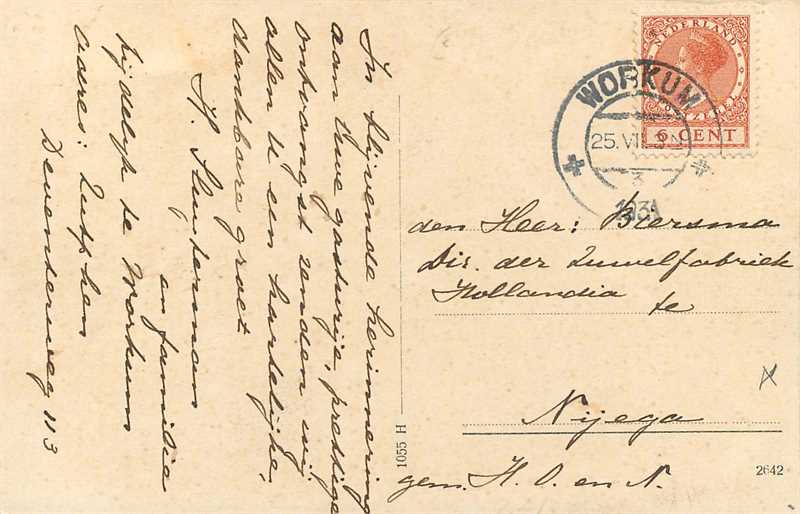 In blijvende herinnering
aan Uwe gastvrije, prettige
ontvangst zenden wij
allen U een hartelijke,
dankbare groet
H. Slenterman
en familie
tijdelijk te Workum
adres: Zutphen
Deventerweg 113
1055 H
NEDERLAND
6 CENT
WORKUM
25.VII.
1931
den Heer: Biersma
Dir. der Zuivelfabriek
Hollandia te
Nijega
gem. H. O. en N.
2642